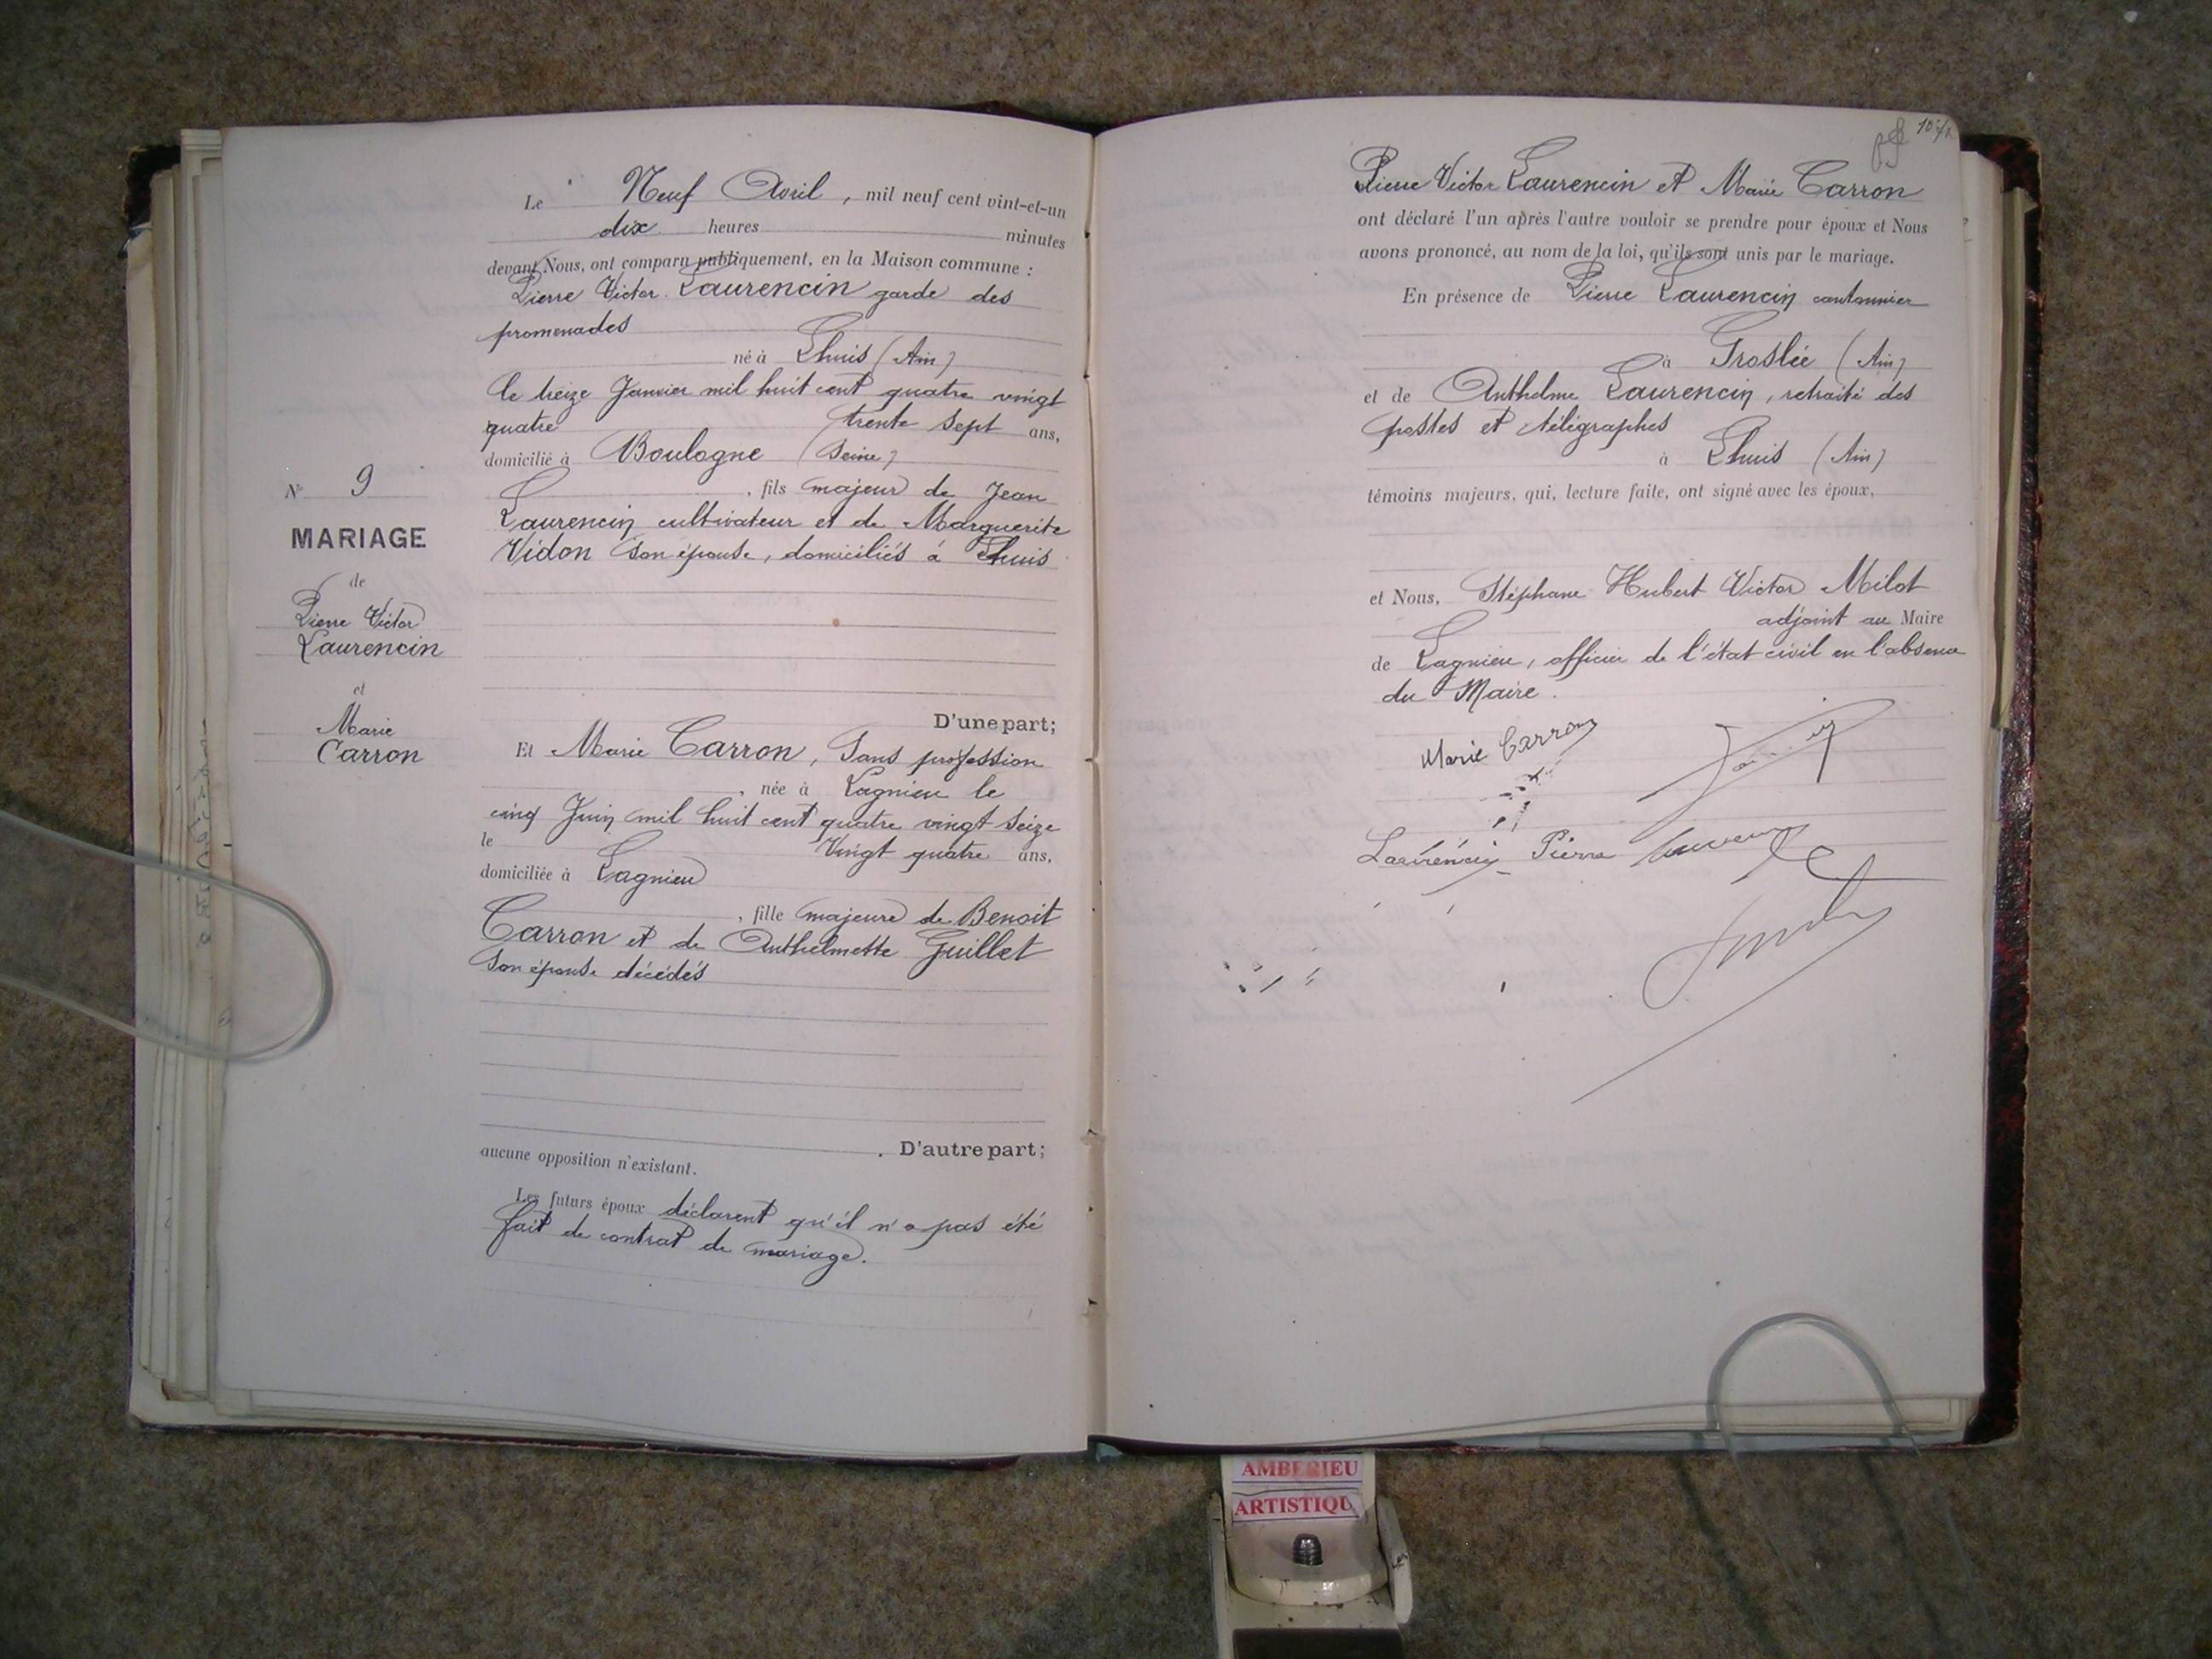 Le Neuf Avril, mil neuf cent vint-et-un
dix heures minutes
devant Nous, ont comparu publiquement, en la Maison commune :
Pierre Victor Laurencin garde des
promenades
né à Lhuis (Ain)
le treize Janvier mil huit cent quatre vingt
quatre trente sept ans,
domicilié à Boulogne (Seine)
, fils majeur de Jean
Laurencin cultivateur et de Marguerite
Vidon son épouse, domiciliés à Lhuis
D'une part;
Et Marie Carron, Sans profession
, née à Lagnieu le
cinq Juin mil huit cent quatre vingt seize
le Vingt quatre ans,
domiciliée à Lagnieu
, fille majeure de Benoit
Carron et de Anthelmette Guillet
son épouse décédés
. D'autre part;
aucune opposition n'existant.
Les futurs époux déclarent qu'il n'a pas été
fait de contrat de mariage.
N° 9
MARIAGE
de
Pierre Victor
Laurencin
et
Marie
Carron
Pierre Victor Laurencin et Marie Carron
ont déclaré l'un après l'autre vouloir se prendre pour époux et Nous
avons prononcé, au nom de la loi, qu'ils sont unis par le mariage.
En présence de Pierre Laurencin cantonnier
à Groslée (Ain)
et de Anthelme Laurencin, retraité des
postes et télégraphes
à Lhuis (Ain)
témoins majeurs, qui, lecture faite, ont signé avec les époux,
et Nous, Stéphane Hubert Victor Milot
adjoint au Maire
de Lagnieu, officier de l'état civil en l'absence
du Maire.
Marie Carron
Laurencin Pierre
AMBERIEU
ARTISTIQU